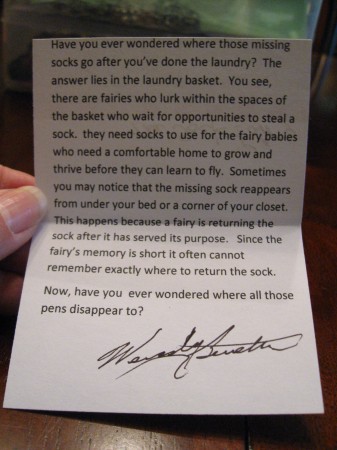 Have you ever wondered where those missing
socks go after you've done the laundry? The
answer lies in the laundry basket. You see,
there are fairies who lurk within the spaces of
the basket who wait for opportunities to steal a
sock. they need socks to use for the fairy babies
who need a comfortable home to grow and
thrive before they can learn to fly. Sometimes
you may notice that the missing sock reappears
from under your bed or a corner of your closet.
This happens because a fairy is returning the
sock after it has served its purpose. Since the
fairy's memory is short it often cannot
remember exactly where to return the sock.
Now, have you ever wondered where all those
pens disappear to?